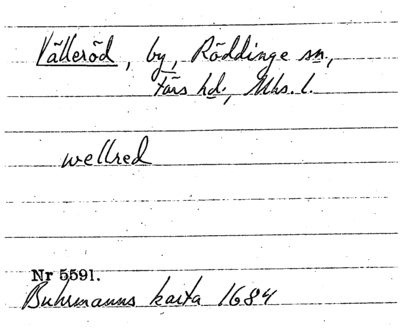 Välleröd, by, Röddinge sn,
Färs hd., Mhs. l.
wellred
Nr 5591.
Buhrmanns karta 1684